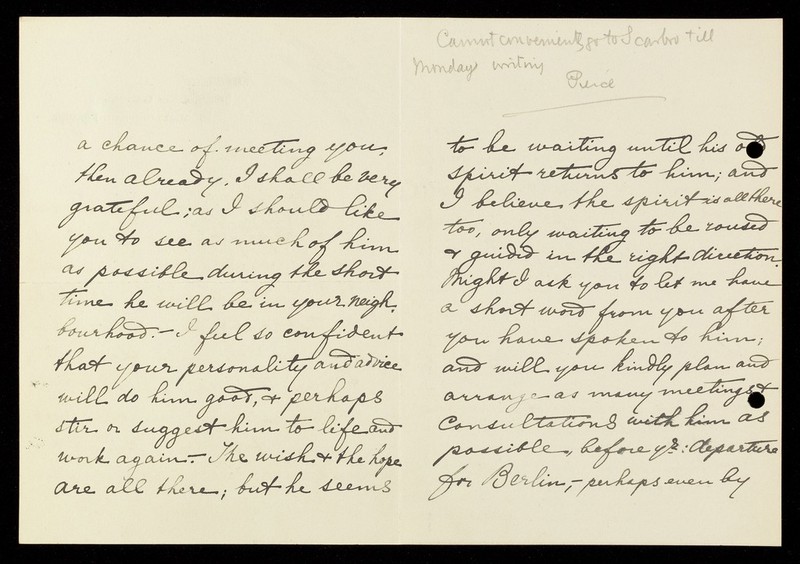 a chance of meeting you,
then already, I shall be very
grateful; as I should like
you to see as much of him
as possible during the short
time he will be in your neigh.
bourhood. - I feel so confident
that your personality and advice
will do him good, & perhaps
stir or suggest him to life and
work again. - The wish & the hope
are all there; but he seems
Cannot conveniently go to Scarbro till
Monday writing
to be waiting until his old
spirit returns to him; and
I believe the spirit is all there
too, only waiting to be roused
& guided in the right direction.
Might I ask you to let me have
a short word from you after
you have spoken to him;
and will you kindly plan and
arrange as many meetings &
consultations with him as
possible, before yr: departure
for Berlin, - perhaps even by